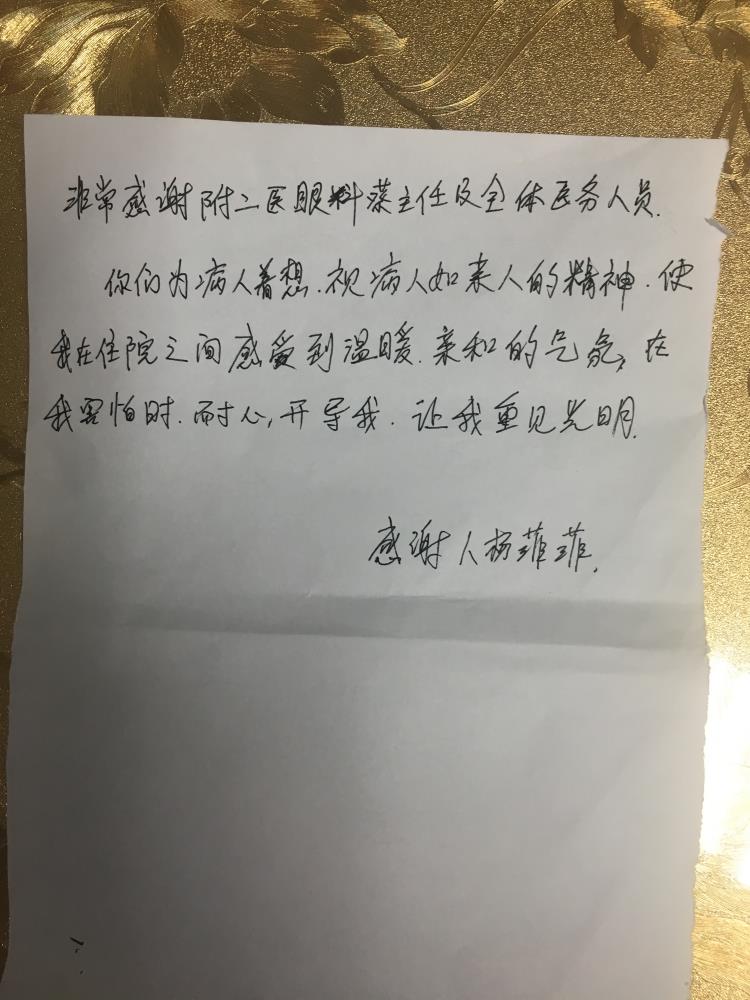 非常感谢附二医眼科梁主任及全体医务人员.
你们为病人着想.视病人如亲人的精神.使
我在住院之间感受到温暖.亲和的气氛,在
我害怕时.耐心,开导我.让我重见光明.
感谢人杨菲菲.